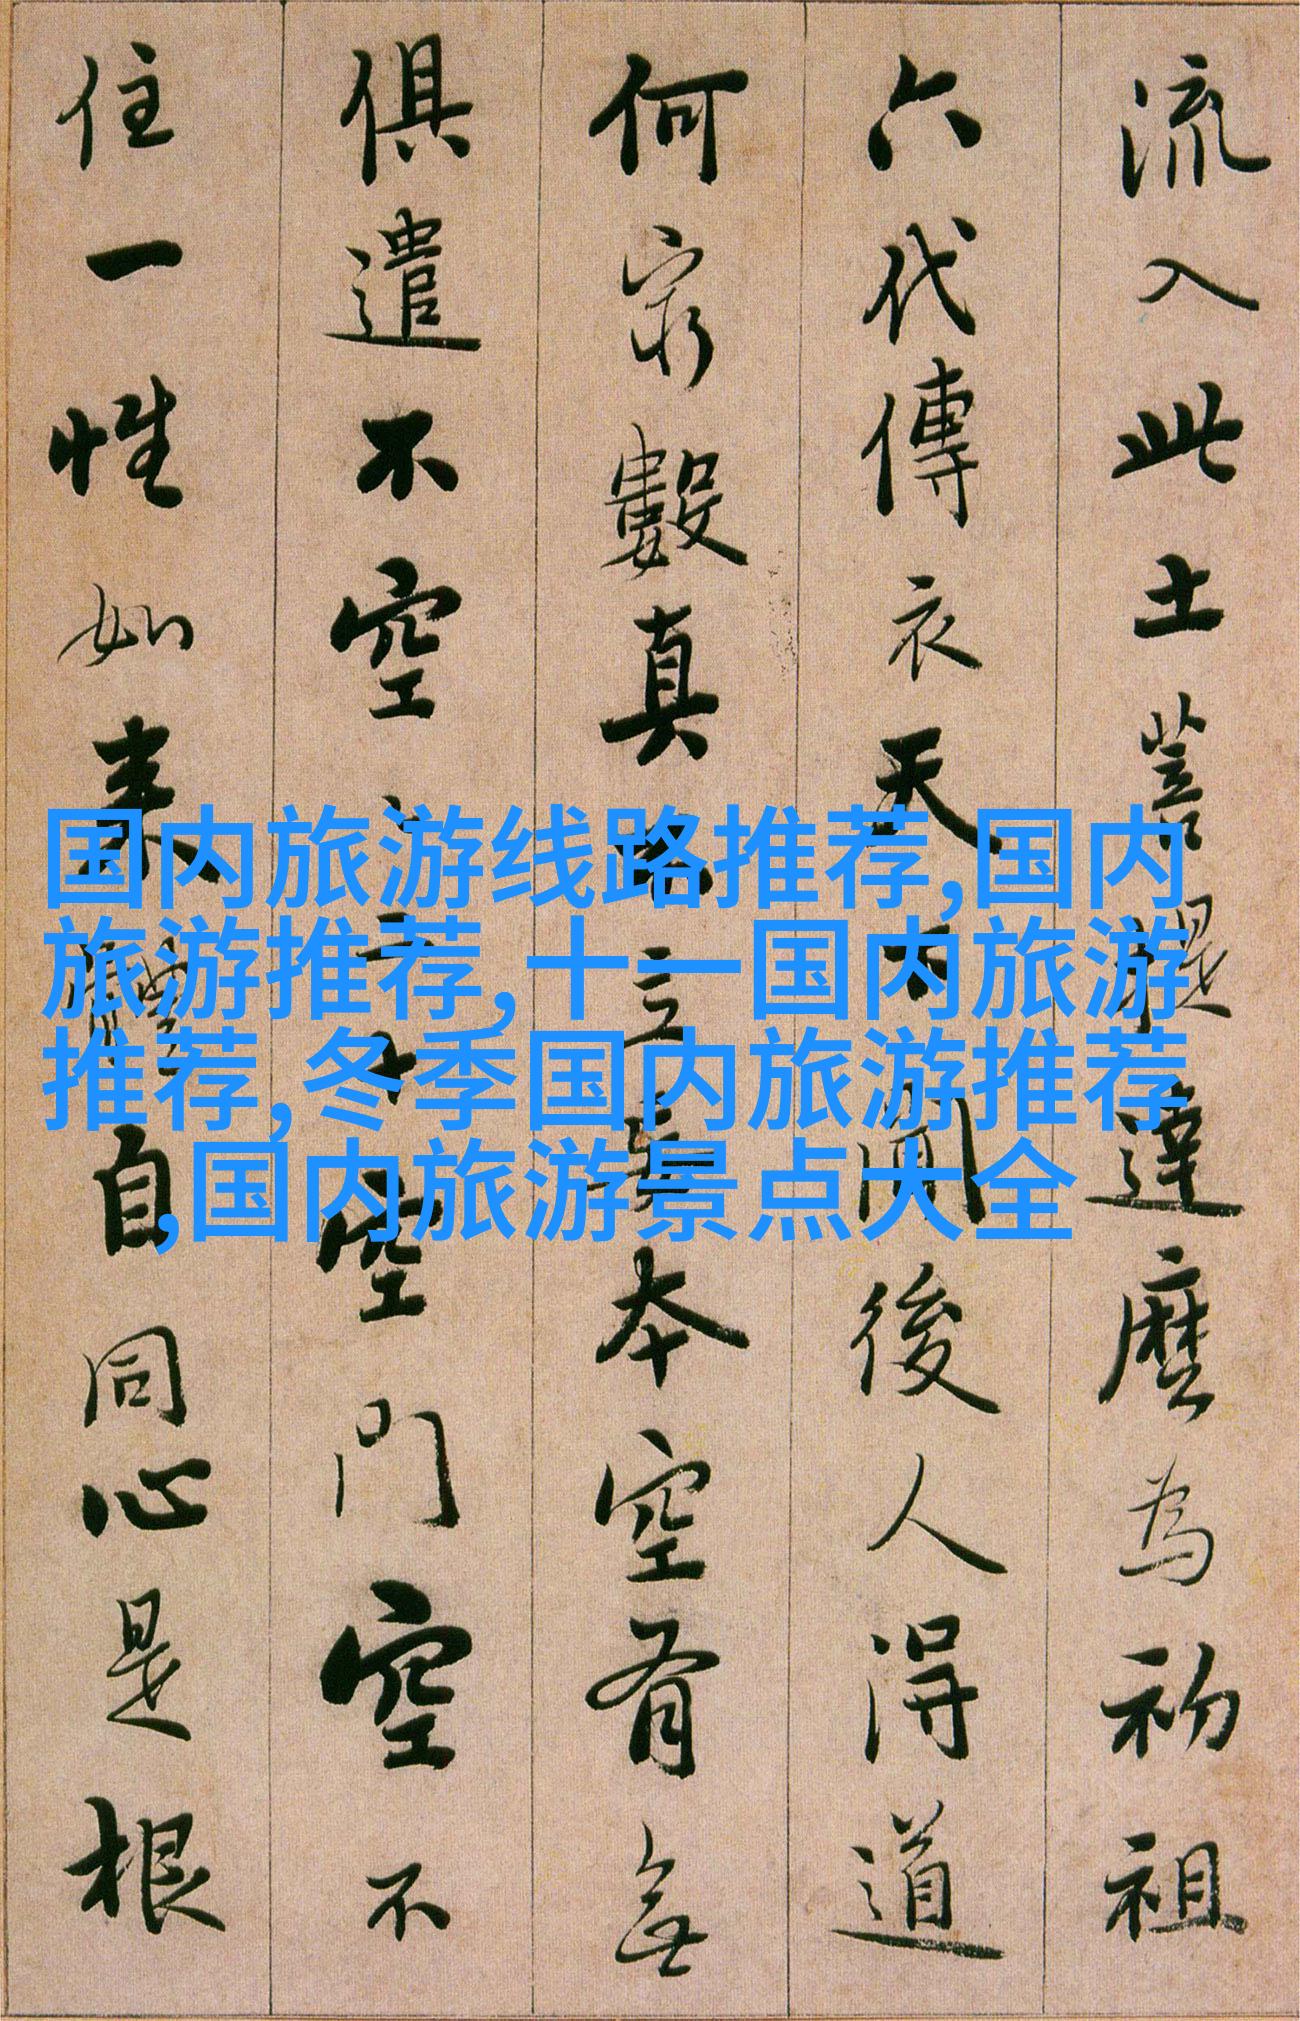 流入此土菩提達麼為初祖
六代傳衣天下聞後人得道
何窮數真不立妄本空有無
俱遣不空空二十空門空不
住一性如来體自同心是根
国内旅游线路推荐,国内
旅游推荐,十一国内旅游
推荐,冬季国内旅游推荐
,国内旅游景点大全